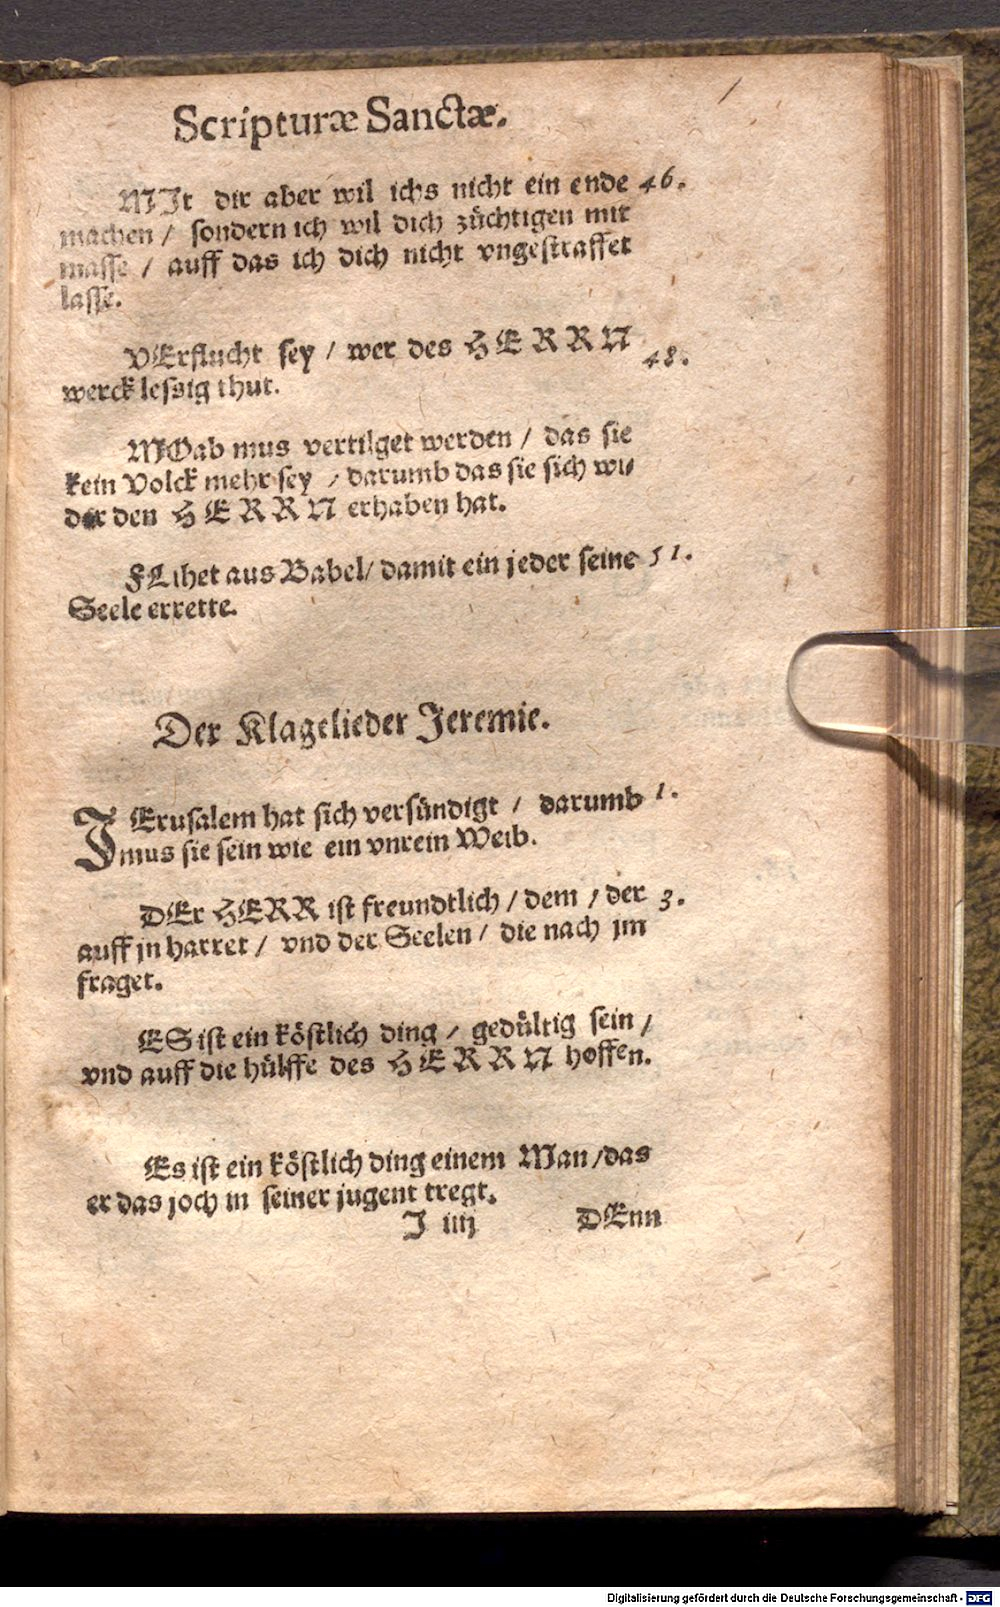 Scripturæ Sanctæ.
MIt dir aber wil ichs nicht ein ende 46.
machen / sondern ich wil dich züchtigen mit
masse / auff das ich dich nicht vngestraffet
lasse.
VErflucht sey / wer des HERRN
48.
werck lessig thut.
MOab mus vertilget werden / das sie
kein Volck mehr sey / darumb das sie sich wi⸗
der den HERRN erhaben hat.
FLihet aus Babel / damit ein jeder seine 51.
Seele errette.
Der Klagelieder Jeremie.
JErusalem hat sich versündigt / darumb 1.
mus sie sein wie ein vnrein Weib.
DEr HERR ist freundtlich / dem / der 3.
auff jn harret / vnd der Seelen / die nach jm
fraget.
ES ist ein köstlich ding / gedültig sein /
vnd auff die hülffe des HERRN hoffen.
Es ist ein köstlich ding einem Man / das
er das joch in seiner jugent tregt.
J iiij DEnn
Digitalisierung gefördert durch die Deutsche Forschungsgemeinschaft - DFG